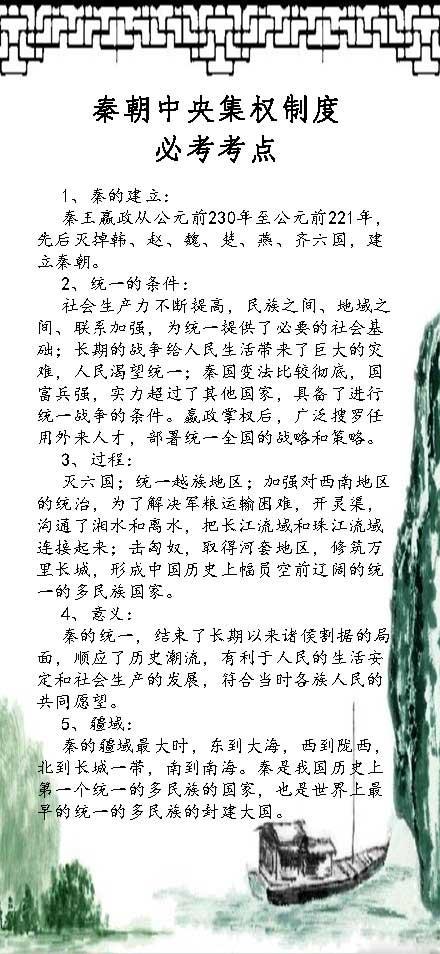 秦朝中央集权制度
必考考点
1、秦的建立：
秦王嬴政从公元前230年至公元前221年，
先后灭掉韩、赵、魏、楚、燕、齐六国，建
立秦朝。
2、统一的条件：
社会生产力不断提高，民族之间、地域之
间、联系加强，为统一提供了必要的社会基
础；长期的战争给人民生活带来了巨大的灾
难，人民渴望统一；秦国变法比较彻底，国
富兵强，实力超过了其他国家，具备了进行
统一战争的条件。嬴政掌权后，广泛搜罗任
用外来人才，部署统一全国的战略和策略。
3、过程：
灭六国；统一越族地区；加强对西南地区
的统治，为了解决军粮运输困难，开灵渠，
沟通了湘水和离水，把长江流域和珠江流域
连接起来；击匈奴，取得河套地区，修筑万
里长城，形成中国历史上幅员空前辽阔的统
一的多民族国家。
4、意义：
秦的统一，结束了长期以来诸侯割据的局
面，顺应了历史潮流，有利于人民的生活安
定和社会生产的发展，符合当时各族人民的
共同愿望。
5、疆域：
秦的疆域最大时，东到大海，西到陇西，
北到长城一带，南到南海。秦是我国历史上
第一个统一的多民族的国家，也是世界上最
早的统一的多民族的封建大国。